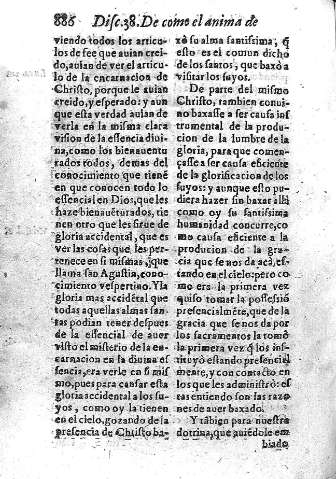 886 Disc.38. De como el anima de
viendo todos los articu-
los de fee que auian crei-
do, auian de ver el articulo
de la encarnacion de
Christo, porque le auian
creido, y esperado: y aun
que esta verdad auian de
verla en la misma clara
vision de la essencia diui-
na, como los bienauentu
rados todos, demas del
conocimiento que tienē
en que conocen todo lo
essencial en Dios, que les
haze bienauēturados, tie
nen otro que les sirue de
gloria accidental, que es
ver las cosas que les per-
tenecen en si mismas, q̄
llama san Agustin, cono-
cimiento vespertino. Y la
gloria mas accidētal que
todas aquellas almas san-
tas podian tener despues
de la essencial de auer
visto el misterio de la en-
carnacion en la diuina es
sencia, era verle en si mis
mo, pues para causar esta
gloria accidental a los su-
yos, como oy la tienen
en el cielo, gozando de la
presencia de Christo ba-
xò su alma santissima, q̄
esto es el comun dicho
de los santos, que baxò a
visitar los suyos.
De parte del mismo
Christo, tambien conui-
no baxasse a ser causa ins
trumental de la produ-
cion de la lumbre de la
gloria, para que comen-
çasse a ser causa eficiente
de la glorificacion de los
suyos: y aunque esto pu-
diera hazer sin baxar alli
como oy su santissima
humanidad concurre, co
mo causa eficiente a la
produzion de la gra-
cia que se nos da acà, es-
tando en el cielo: pero co
mo era la primera vez
quiso tomar la possessiō
presencialmēte, que de la
gracia que se nos da por
los sacramentos la tomò
la primera vez q̄ los ins-
tituyò estando presenciel
mente, y con contacto en
los que les administrò: es
tas entiendo son las razo
nes de auer baxado.
Y tābien para nuestra
dotrina, que auiēdole em
biado